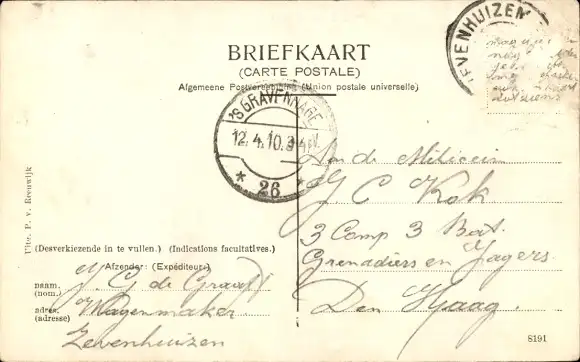 BRIEFKAART
(CARTE POSTALE)
Algemeene Postvereeniging (Union postale universelle)
EVENHUIZEN
'S GRAVENHAGE
12.4.10.3-4N
* 26 *
Aan de Milicien
J C Kok
3 Comp 3 Bat.
Grenadiers en Jagers
Den Haag
Uitg. P. v. Reeuwijk
(Desverkiezende in te vullen.) (Indications facultatives.)
Afzender: (Expéditeur)
naam. (nom.) J. G de Graaff
adres. (adresse) Wagenmaker
Zevenhuizen
8191